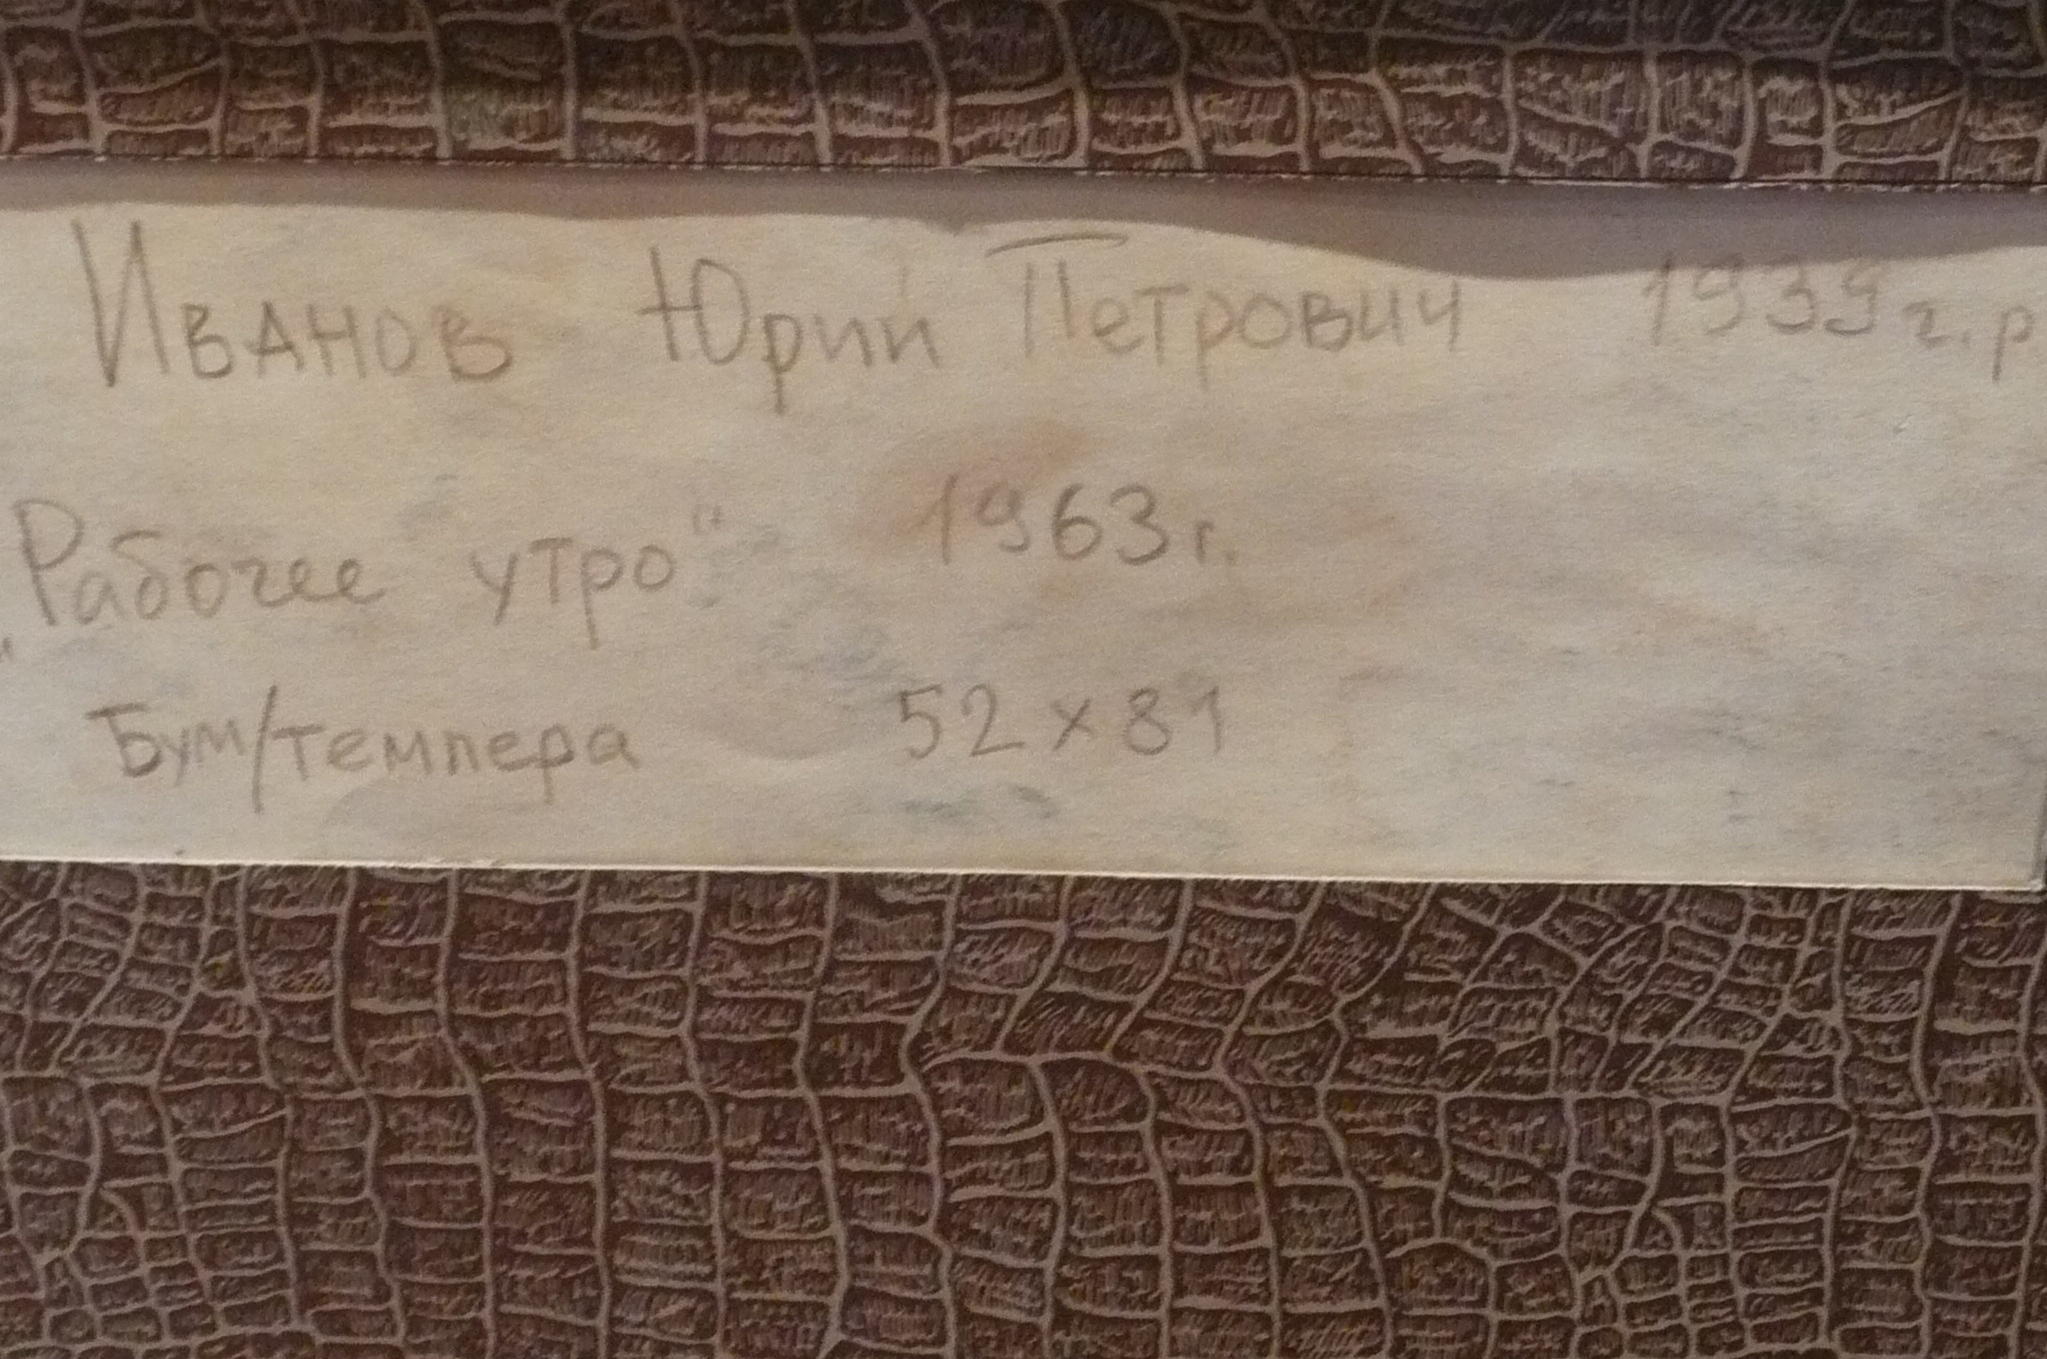 Иванов Юрий Петрович 1939 г.р
„Рабочее утро“ 1963 г.
Бум/темпера 52 x 81